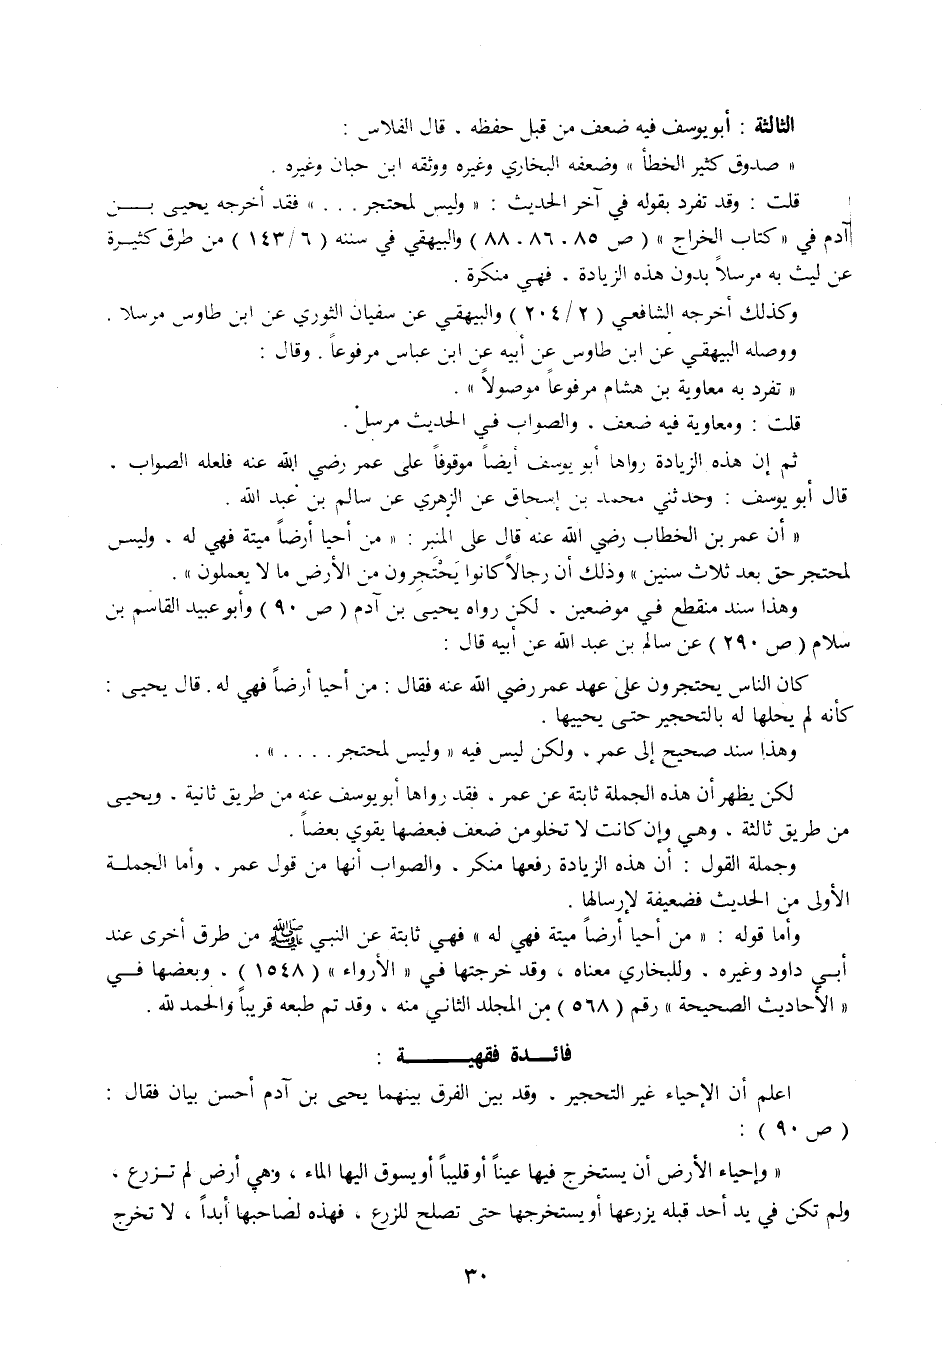 الثالثة : أبو يوسف فيه ضعف من قبل حفظه . قال الفلاس :
« صدوق كثير الخطأ » وضعفه البخاري وغيره ووثقه ابن حبان وغيره .
قلت : وقد تفرد بقوله في آخر الحديث : « وليس لمحتجر . . . » فقد أخرجه يحيى بـــن
آدم في « كتاب الخراج » ( ص ٨٥ ، ٨٦ ، ٨٨ ) والبيهقي في سننه ( ٦/ ١٤٣ ) من طرق كثيـرة
عن ليث به مرسلاً بدون هذه الزيادة . فهي منكرة .
وكذلك أخرجه الشافعي ( ٢/ ٢٠٤ ) والبيهقي عن سفيان الثوري عن ابن طاوس مرسلا .
ووصله البيهقي عن ابن طاوس عن أبيه عن ابن عباس مرفوعاً . وقال :
« تفرد به معاوية بن هشام مرفوعاً موصولاً » .
قلت : ومعاوية فيه ضعف . والصواب في الحديث مرسلْ .
ثم إن هذه الزيادة رواها أبو يوسف أيضاً موقوفاً على عمر رضي الله عنه فلعله الصواب .
قال أبو يوسف : وحدثني محمد بن إسحاق عن الزهري عن سالم بن عبد الله .
« أن عمر بن الخطاب رضي الله عنه قال على المنبر : « من أحيا أرضاً ميتة فهي له . وليس
لمحتجر حق بعد ثلاث سنين » وذلك أن رجالاً كانوا يَحْتَجِرون من الأرض ما لا يعملون » .
وهذا سند منقطع في موضعين . لكن رواه يحيى بن آدم ( ص ٩٠ ) وأبو عبيد القاسم بن
سلام ( ص ٢٩٠ ) عن سالم بن عبد الله عن أبيه قال :
كان الناس يحتجرون على عهد عمر رضي الله عنه فقال : من أحيا أرضاً فهي له . قال يحيى :
كأنه لم يحلها له بالتحجير حتى يحييها .
وهذا سند صحيح إلى عمر . ولكن ليس فيه « وليس لمحتجر . . . . » .
لكن يظهر أن هذه الجملة ثابتة عن عمر . فقد رواها أبو يوسف عنه من طريق ثانية . ويحيى
من طريق ثالثة . وهي وإن كانت لا تخلو من ضعف فبعضها يقوي بعضاً .
وجملة القول : أن هذه الزيادة رفعها منكر . والصواب أنها من قول عمر . وأما الجملـة
الأولى من الحديث فضعيفة لإرسالها .
وأما قوله : « من أحيا أرضاً ميتة فهي له » فهي ثابتة عن النبي ﷺ من طرق أخرى عند
أبي داود وغيره . وللبخاري معناه ، وقد خرجتها في « الأرواء » ( ١٥٤٨ ) . وبعضها فـي
« الأحاديث الصحيحة » رقم ( ٥٦٨ ) من المجلد الثاني منه ، وقد تم طبعه قريباً والحمد لله .
فائـــدة فقهيـــــة :
اعلم أن الإحياء غير التحجير . وقد بين الفرق بينهما يحيى بن آدم أحسن بيان فقال :
( ص ٩٠ ) :
« وإحياء الأرض أن يستخرج فيها عيناً أو قليباً أو يسوق اليها الماء ، وهي أرض لم تـزرع ،
ولم تكن في يد أحد قبله يزرعها أو يستخرجها حتى تصلح للزرع ، فهذه لصاحبها أبداً ، لا تخرج
٣٠